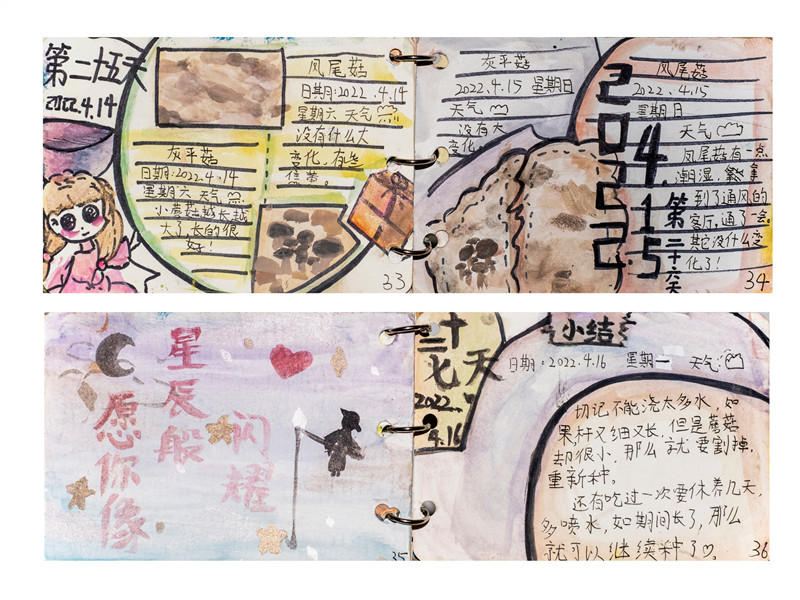 第二十五天
2022.4.14
凤尾菇
日期:2022.4.14
星期六 天气
没有什么大
变化,有些
灰平菇
日期:2022.4.14
星期六 天气
小蘑菇越长越
大了,长的很
好!
33
灰平菇
2022.4.15 星期日
天气
没有大
变化
2022
4.15
第二十六天
凤尾菇
2022.4.15
星期日
天气
凤尾菇有一点
潮湿,
到了通风的
客厅,通了一会.
其它没什么变
化了!
34
愿你像
星辰般
闪耀
35
二十七天
2022.
4.16
小结
日期:2022.4.16 星期一 天气:
切记不能浇太多水,如
果杆又细又长.但是蘑菇
却很小.那么就要割掉.
重新种。
还有吃过一次要休养几天,
多喷水,如期间长了,那么
就可以继续种了♡.
36